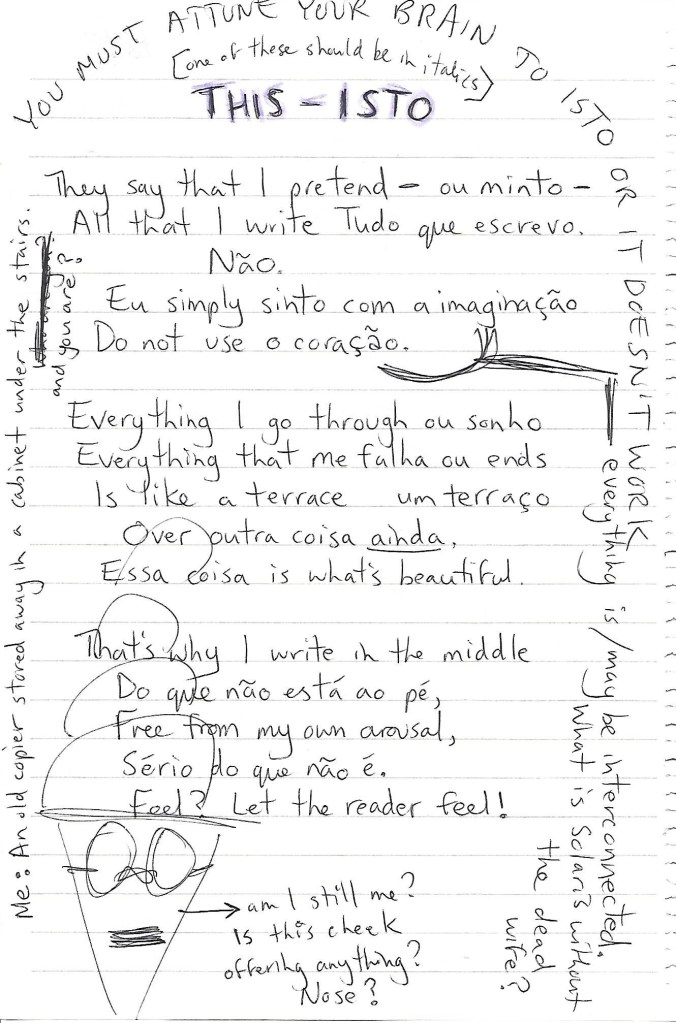 YOU MUST ATTUNE YOUR BRAIN TO ISTO OR IT DOESN'T WORK
[one of these should be in italics]
THIS – ISTO
They say that I pretend – ou minto –
All that I write Tudo que escrevo.
Não.
Eu simply sinto com a imaginação
Do not use o coração.
Everything I go through ou sonho
Everything that me falha ou ends
Is like a terrace um terraço
Over outra coisa ainda,
Essa coisa is what's beautiful.
That's why I write in the middle
Do que não está ao pé,
Free from my own arousal,
Sério do que não é.
Feel? Let the reader feel!
and you are?
Me: An old copier stored away in a cabinet under the stairs.
everything is/may be interconnected.
What is Solaris without
the dead
wife?
am I still me?
is this cheek
offering anything?
Nose?